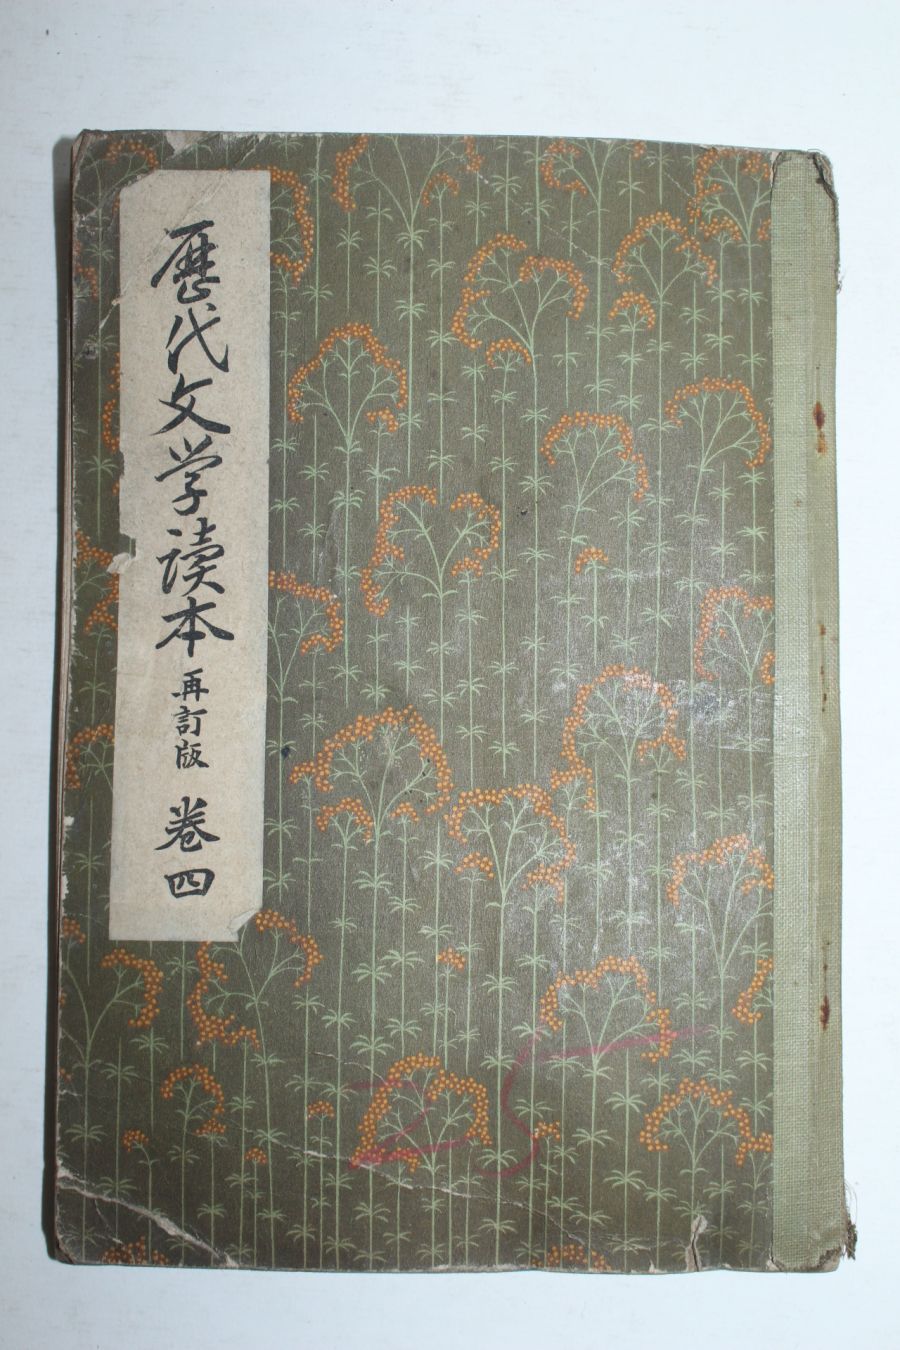 歴代文学読本 再訂版 巻四
25